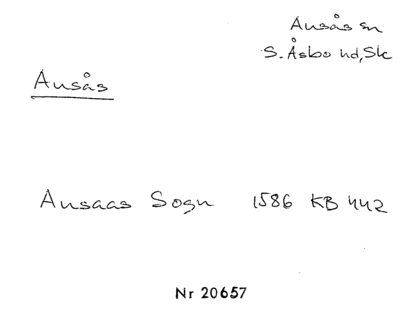 Ausås sn
S. Åsbo hd, Sk
Ausås
Ausaas Sogn 1586 KB 442
Nr 20657